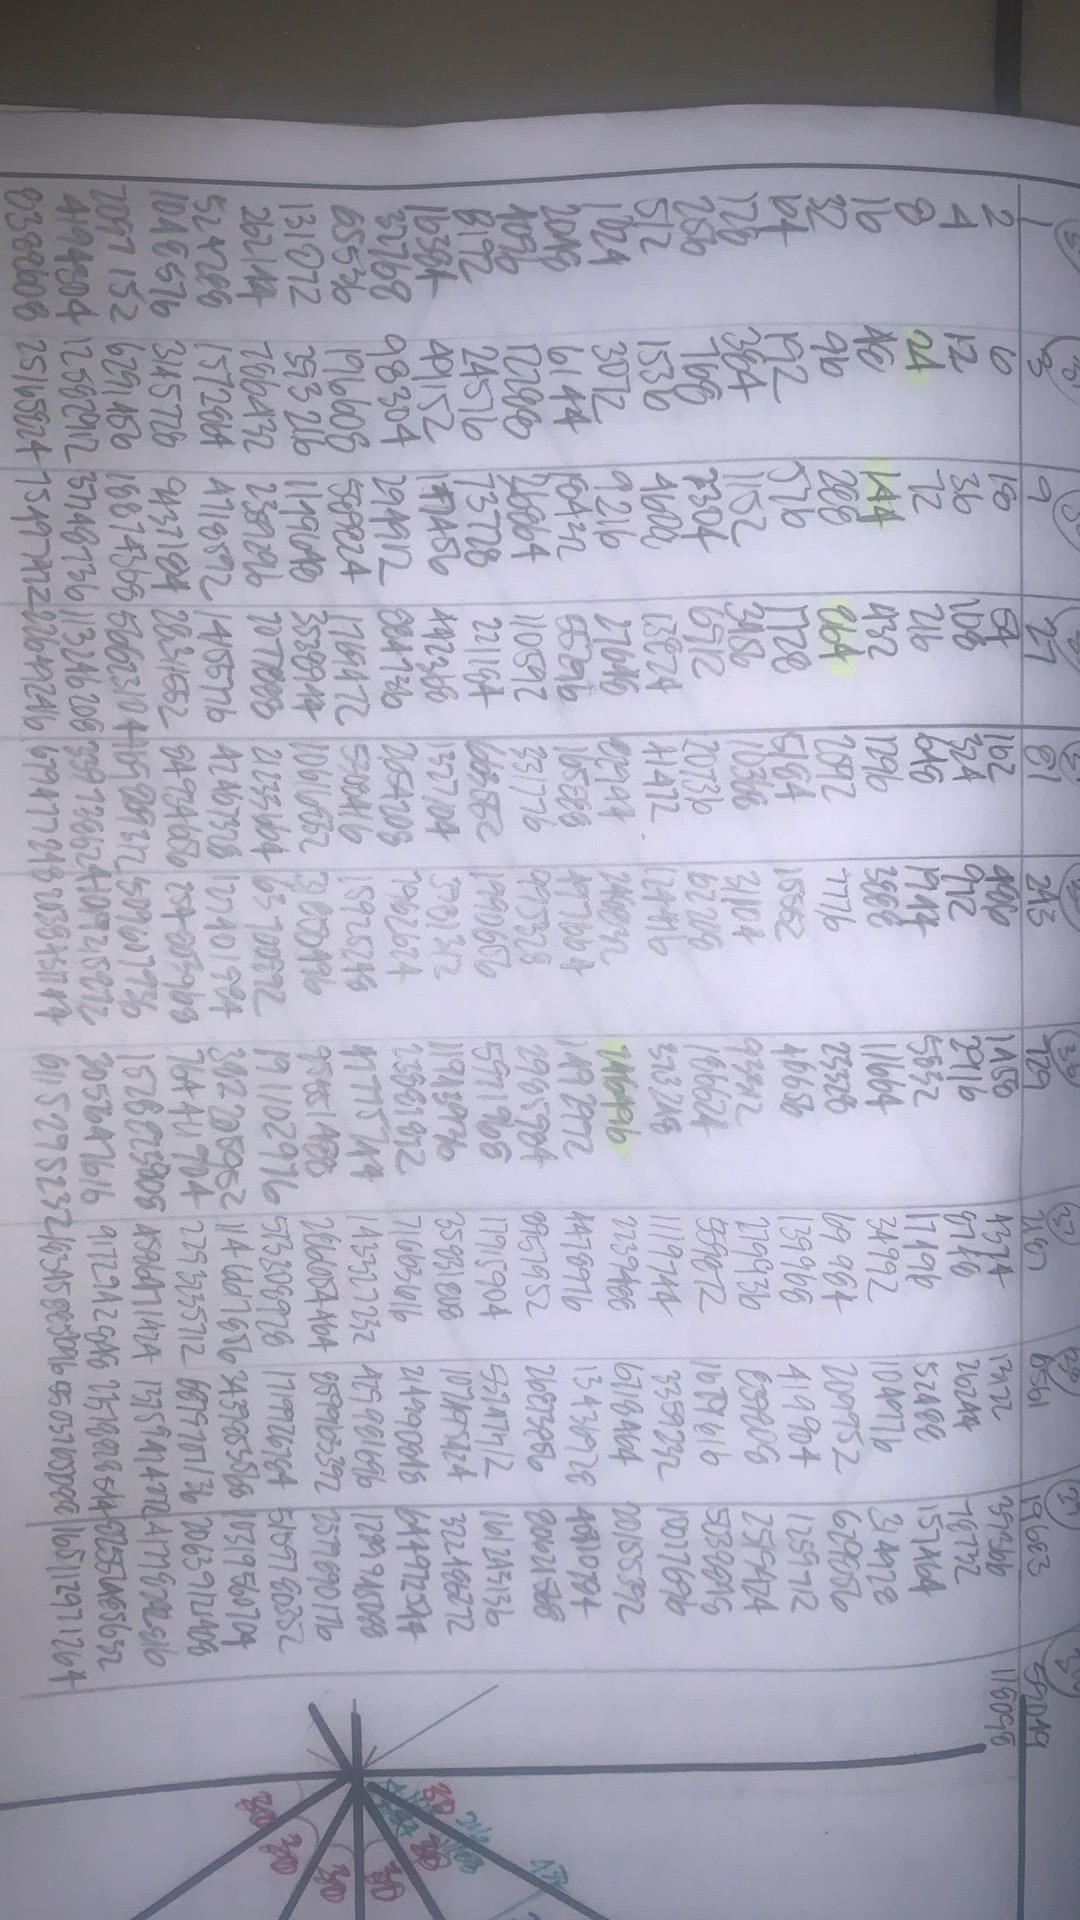 1 3 9 27 81 243 729 2187 6561 19683 59049
2 6 18 54 162 486 1458 4374 13122 39366 118098
4 12 36 108 324 972 2916 8748 26244 78732
8 24 72 216 648 1944 5832 17496 52488 157464
16 48 144 432 1296 3888 11664 34992 104976 314928
32 96 288 864 2592 7776 23328 69984 209952 629856
64 192 576 1728 5184 15552 46656 139968 419904 1259712
128 384 1152 3456 10368 31104 93312 279936 839808 2519424
256 768 2304 6912 20736 62208 186624 559872 1679616 5038848
512 1536 4608 13824 41472 124416 373248 1119744 3359232 10077696
1024 3072 9216 27648 82944 248832 746496 2239488 6718464 20155392
2048 6144 18432 55296 165888 497664 4478976 13436928 40310784
4096 12288 36864 110592 331776 995328 2985984 8957952 26873856 80621568
8192 24576 73728 221184 663552 1990656 5971968 17915904 53747712 161243136
16384 49152 147456 442368 1327104 11943936 35831808 107495424 322486272
32768 98304 294912 884736 2654208 7962624 71663616 214990848 644972544
65536 196608 589824 1769472 5308416 15925248 47775744 143327232 429981696 1289945088
131072 393216 1179648 3538944 10616832 95551488 286654464 859963392 2579890176
262144 786432 2359296 7077888 21233664 63700992 191102976 573308928 1719926784 5159780352
524288 1572864 4718592 14155776 42467328 127401984 382205952 1146617856 3439853568 10319560704
1048576 3145728 9437184 28311552 84934656 254803968 764411904 6879707136 20639121408
2097152 6291456 18874368 56623104 169869312 509607936 1528823808 4586471424 13759414272
4194304 12582912 37748736 113246208 9172942848 82556485632
8388608 25165824 75497472 679477248 6115295232 165112971264
30 216
30
30
30
30